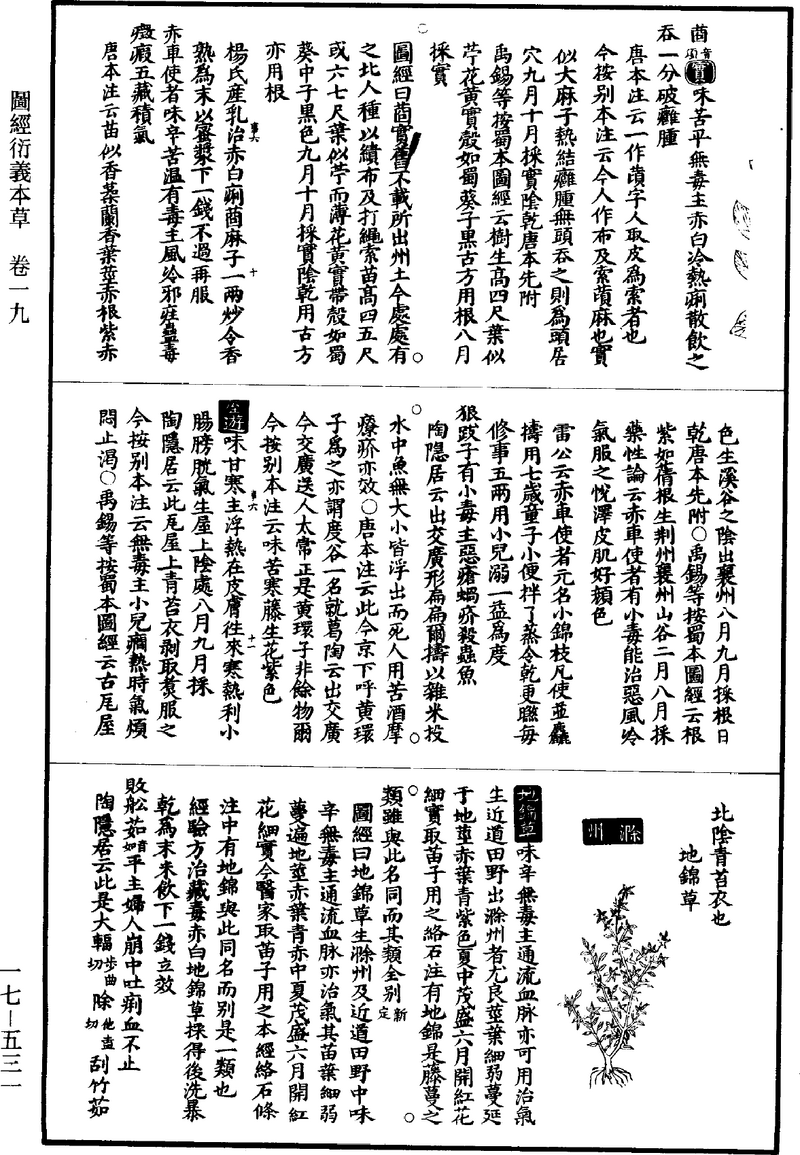 圖經衍義本草　卷一九
一七－五三一
莔音頃實味苦平無毒主赤白冷熱痢散飲之
吞一分破癰腫
唐本注云一作䔛字人取皮為索者也
今按别本注云今人作布及索䔛麻也實
似大麻子熱結癰腫無頭吞之則為頭居
穴九月十月採實陰乾唐本先附
禹錫等按蜀本圖經云樹生高四尺葉似
苧花黃實殼如蜀葵子黑古方用根八月
採實
圖經曰莔實舊不載所出州土今處處有
之北人種以績布及打繩索苗高四五尺
或六七尺葉似苧而薄花黃實帶殼如蜀
葵中子黑色九月十月採實陰乾用古方
亦用根
楊氏産乳治赤白痢莔麻子一兩炒令香
熟為末以蜜漿下一錢不過再服
赤車使者味辛苦温有毒主風冷邪疰蠱毒
癥瘕五藏積氣
唐本注云苗似香葇蘭香葉莖赤根紫赤
色生溪谷之陰出襄州八月九月採根日
乾唐本先附○禹錫等按蜀本圖經云根
紫如蒨根生荆州襄州山谷二月八月採
藥性論云赤車使者有小毒能治惡風冷
氣服之悅澤皮肌好顏色
雷公云赤車使者元名小錦枝凡使並麤
擣用七歲童子小便拌了蒸令乾更㬠每
修事五兩用小兒溺一盃為度
狼跋子有小毒主惡瘡蝸疥殺蟲魚
陶隱居云出交廣形扁扁爾擣以雜米投
水中魚無大小皆浮出而死人用苦酒摩
療疥亦效○唐本注云此今京下呼黃環
子為之亦謂度谷一名就葛陶云出交廣
今交廣送人太常正是黃環子非餘物爾
今按别本注云味苦寒藤生花紫色
屋遊味甘寒主浮熱在皮膚往來寒熱利小
腸膀胱氣生屋上陰處八月九月採
陶隱居云此瓦屋上青苔衣剥取煑服之
今按别本注云無毒主小兒癇熱時氣煩
悶止渴○禹錫等按蜀本圖經云古瓦屋
北陰青苔衣也
地錦草
滁州
地錦草味辛無毒主通流血脉亦可用治氣
生近道田野出滁州者尤良莖葉細弱蔓延
于地莖赤葉青紫色夏中茂盛六月開紅花
細實取苗子用之絡石注有地錦是藤蔓之
類雖與此名同而其類全别新定
圖經曰地錦草生滁州及近道田野中味
辛無毒主通流血脉亦治氣其苗葉細弱
蔓遍地莖赤葉青赤中夏茂盛六月開紅
花細實今醫家取苗子用之本經絡石條
注中有地錦與此同名而别是一類也
經驗方治藏毒赤白地錦草採得後洗暴
乾為末米飲下一錢立效
敗舩茹音如平主婦人崩中吐痢血不止
陶隱居云此是大䑧步曲切除他盍切刮竹茹